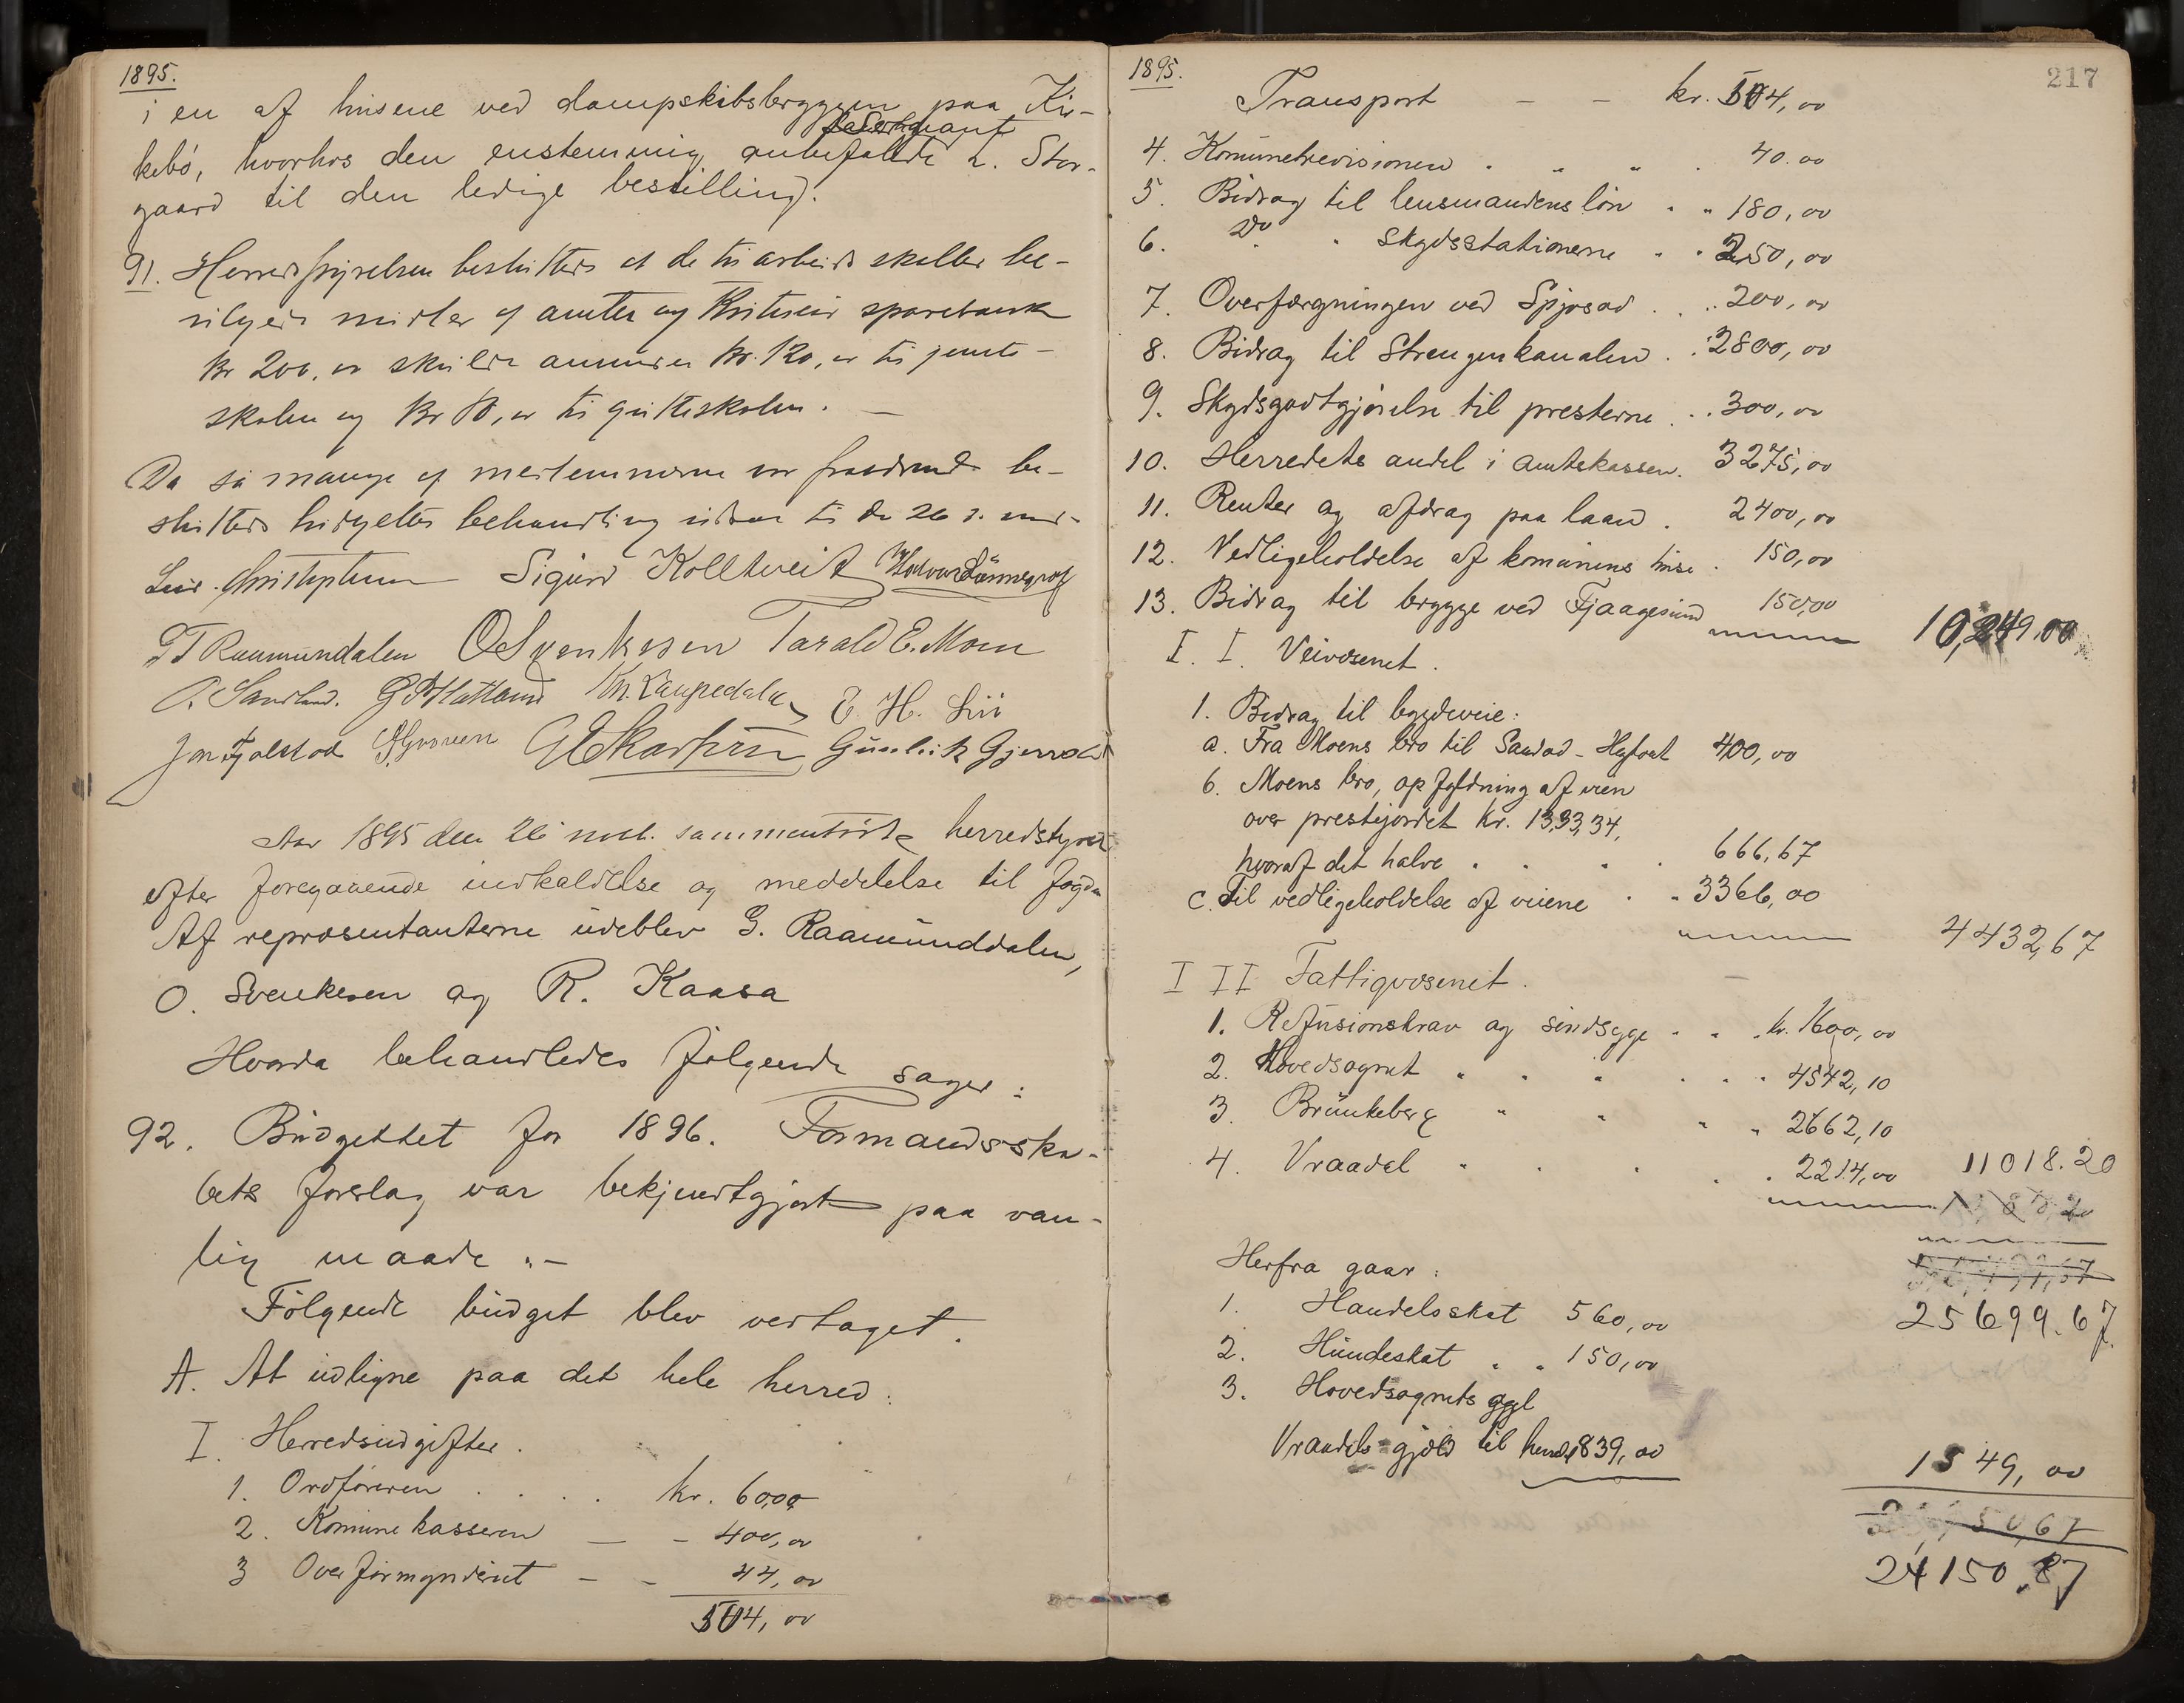 1895.
i en af husene ved dampskibsbryggen paa Kir-
kebö, hvorhos den enstemmig anbefalede L. Stor-
gaard til den ledige bestilling.
91. Herredsstyrelsen besluttede at de til arbeids skoller be-
vilgede midler af amtet og Hvitseid sparebank
kr 200,00 skulde kr. 120,00 til jente-
skolen og kr 80,00 til gutteskolen. —
Da så mange af medlemmerne var fraværende be-
sluttedes budgettets behandling udsat til den 26 d. md.
Sigurd Kolltveit
G T Raamundalen O Svenkesen Tarald E. Moen
O. Sandland. Kn. Laupedalen E. H. Lii
Jon Fjalestad Gunleik Gjerrde
Aar 1895 den 26 novb. sammentraadte herredstyret
efter foregaaende indkaldelse og meddelelse til fogden
Af repræsentanterne udeblev G. Raamunddalen,
O. Svenkesen og R. Kaasa
Hvorda behandledes fölgende sager:
92. Budgettet for 1896. Formandsska-
bets forslag var bekjendtgjort paa van-
lig maade.—
Fölgende budget blev vedtaget.
A. At udligne paa det hele herred:
I. Herredsudgifter.
1. Ordföreren . . . . kr. 60,00
2. Komunekasseren — - 400,00
3 Overformynderiet — - 44,00
504,00
1895.
217
Transport — — kr. 504,00
4. Komunerevisionen . „ „ . 40.00
5. Bidrag til lensmandens lön . „ 180,00
6. Do. „ Skydsstationerne . „ 250,00
7. Overfærgningen ved Spjosod . . . 200,00
8. Bidrag til Strengenkanalen . . 2800,00
9. Skydsgodtgjörelse til presterne . . 300,00
10. Herredets andel i amtskassen. 3275,00
11. Renter og afdrag paa laan . 2400,00
12. Vedligeholdelse af komunens huse . 150,00
13. Bidrag til brygge ved Fjaagesund 150,00
10,249,00
II. Veivæsenet.
1. Bidrag til bygdeveie:
a. Fra Moens bro til Sandod - 400,00
b. Moens bro, opfyldning af veien
over prestejordet kr. 1333,34,
hvoraf det halve . . . . 666,67
c. Til vedligeholdelse af veiene . „ 3366,00
4432,67
III Fattigvæsenet.
1. Refusionskrav og sindssyge . „ . kr. 1600,00
2. Hovedsognet „ . „ . . „ 4542,10
3. Brunkeberg „ „ „ „ 2662,10
4. Vraadal „ . . . . 2214,00
11018.20
Herfra gaar:
25699.67
1. Handelsskat 560,00
2. Hundeskat . „ 150,00
3. Hovedsognets og
Vraadals gjæld til 839,00
1549,00
24150,67